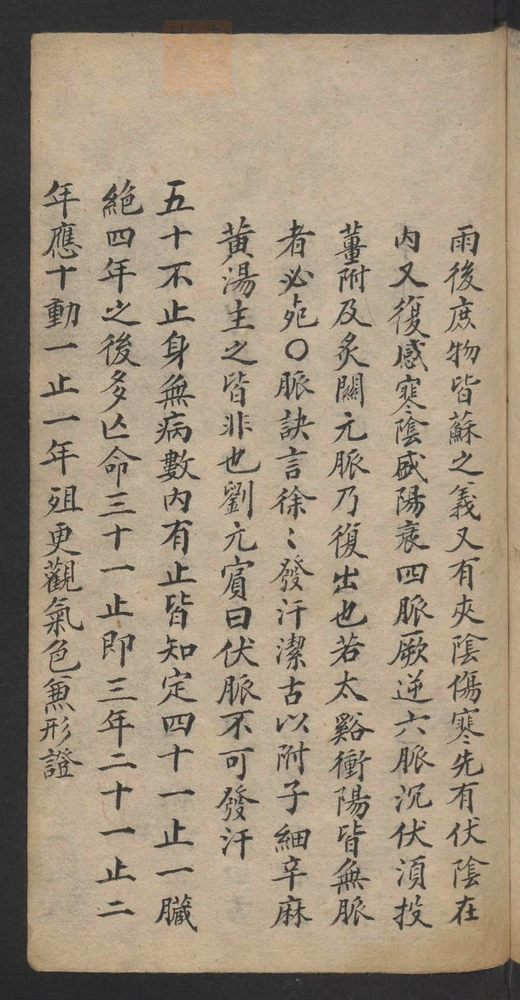 雨後庶物皆蘇之義又有夾陰傷寒先有伏陰在
内又復感寒陰盛陽衰四脈厥逆六脈沉伏湏投
薑附及炙關元脈乃復出也若太谿衝陽皆無脈
者必死〇脈訣言徐〻發汗潔古以附子細辛麻
黄湯主之皆非也劉元賓曰伏脈不可發汗
五十不止身無病數内有止皆知定四十一止一臟
絶四年之後多亾命三十一止即三年二十一止二
年應十動一止一年殂更觀氣色兼形證